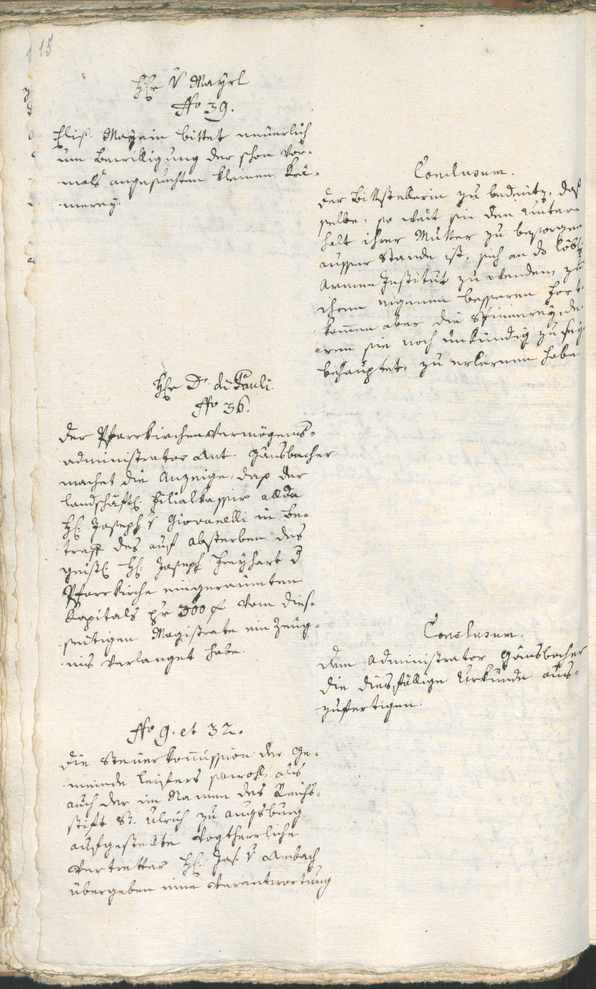 15
Hr. v. Mayrl
No 39.
Elis. Mayrin bittet neuerlich
um Bewilligung der schon vor-
mals angesuchten kleinen Krä-
merey.
Conclusum.
Der Bittstellerin zu bedeuten, daß
selbe, so weit sie den Unter-
halt ihrer Mutter zu besorgen
ausser Stande ist, sich an das löbl.
Armen Institut zu wenden, zu
ihrem eigenen besseren Fort-
kommen aber die Spinnerey, de-
ren sie noch unkündig zu seyn
behauptet, zu erlernen habe.
Hr. Dr. di Pauli.
No 36.
Der Pfarrkirchenvermögens-
administrator Ant. Gänsbacher
machet die Anzeige, daß der
landschäftl. Filialkassier allda
H. Joseph v. Giovanelli in Be-
treff des auf Absterben des
geistl. H. Joseph Freyhart d.
Pfarrkirche eingeraumten
Kapitals pr 300 f. vom dies-
seitigen Magistrate ein Zeug-
nis verlanget habe.
Conclusum.
Dem Administrator Gänsbacher
die diesfällige Urkunde aus-
zufertigen.
No 9. et 32.
Die Steuerkommission der Ge-
meinde Leifers sowohl, als
auch der im Namen des Reichs-
stift St. Ulrich zu Augsburg
aufgestellte vogtherrliche
Vertretter H. Jos. v. Anbach
übergeben eine Verantwortung